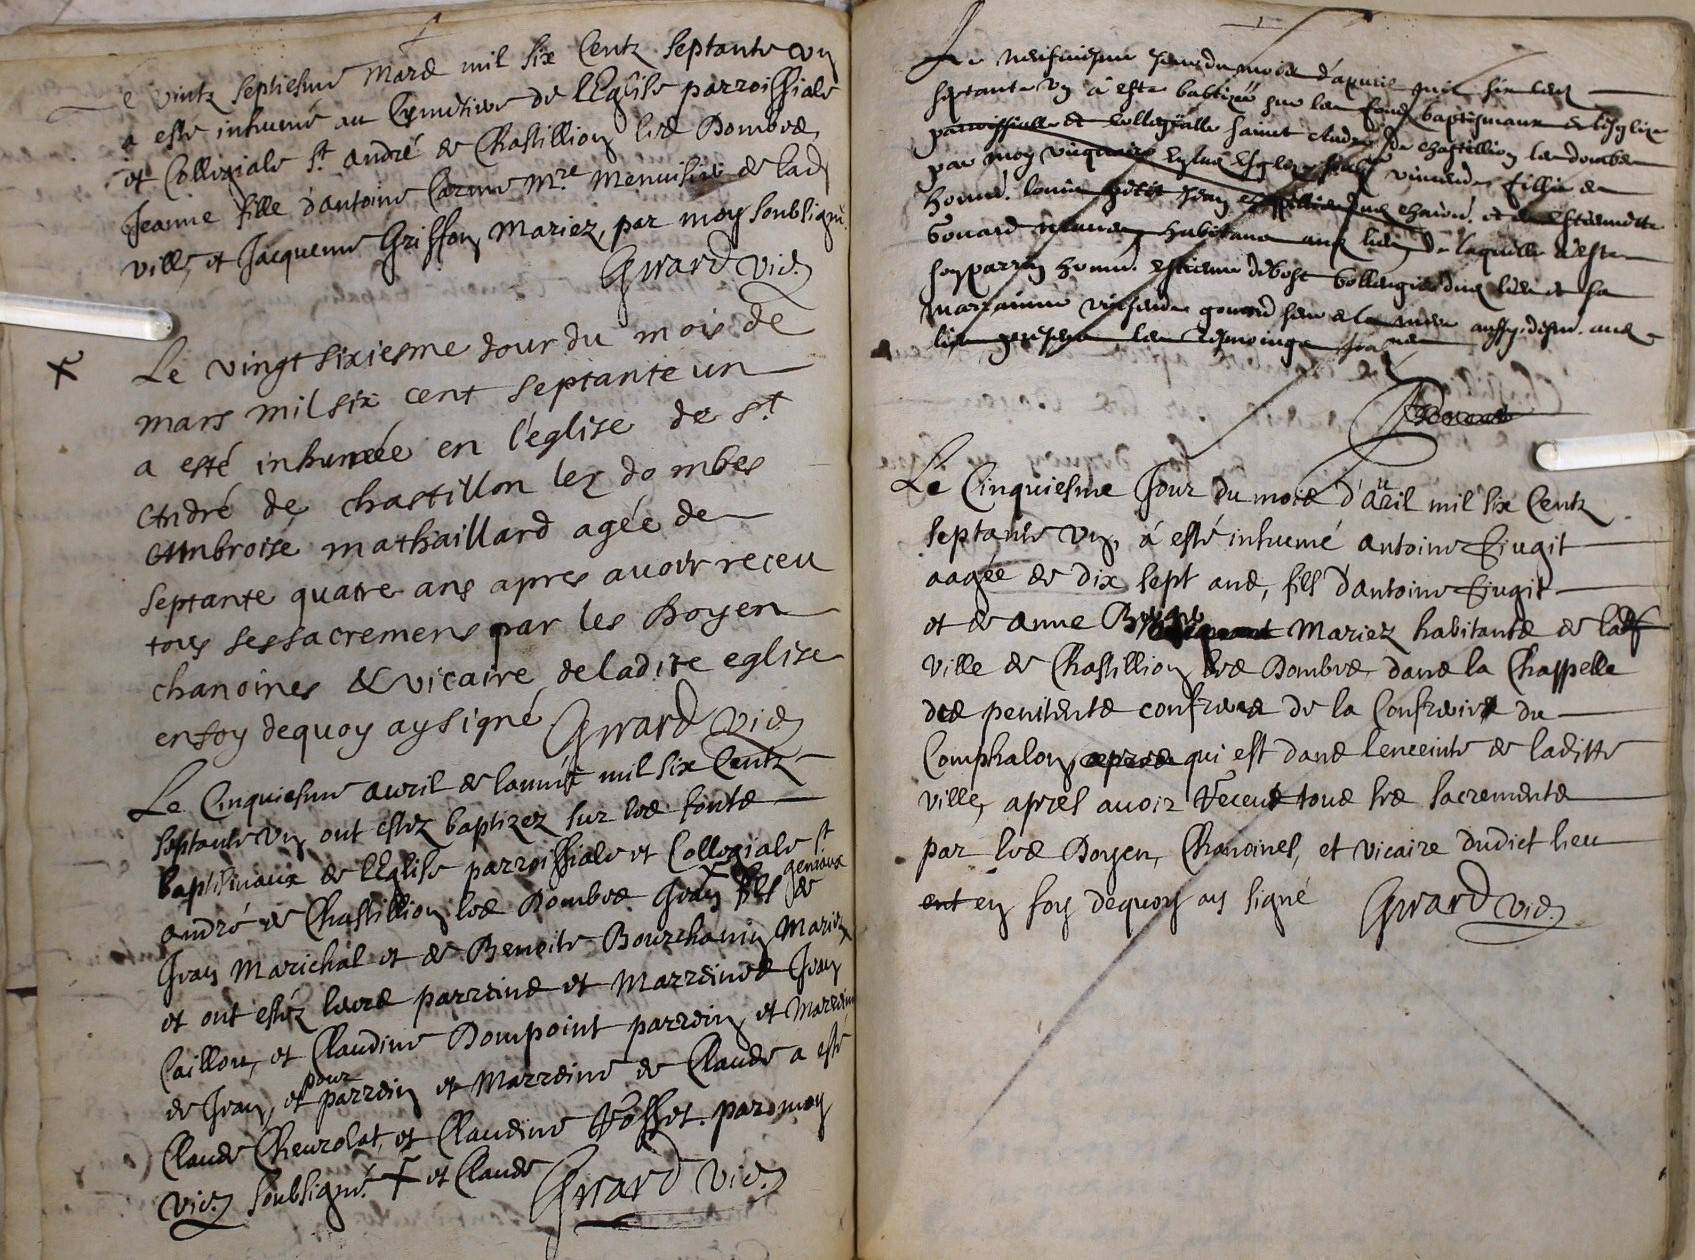 e vintz septiesme Mars mil six Centz septante un
a esté inhumé au Cymetiere de l'Eglise parroissiale
et Collegiale st. André de Chastillion les Dombes
Jeanne fille d'Antoine Carme Mre. Menuisier de lad
ville, et Jacqueme Griffon, Mariez, par moy soubsigné.
Girard vic.
Le vingt sixiesme Jour du mois de
mars mil six cent septante un
a esté inhumée en l'église de st
André de Chastillon les dombes
Ambroise mathaillard agée de
septante quatre ans apres avoir receu
tous ses sacremens par les Doyen
chanoines & vicaire de ladite eglise
en foy de quoy ay signé Girard vic.
Le Cinquiesme avril de l'année mil six Centz
septante un ont estez baptizez sur les fonts
baptismaux de l'Eglise parroissiale et Collegiale st
André de Chastillion les Dombes Jean fils gemeaux de
Jean Marichal et de Benoite Bourchanin Mariez
et ont estéz leurs parreins et Marreines Jean
Caillon, et Claudine Dompoint parrein, et Marreine
de Jean, et pour parrein et Marreine de Claude a esté
Claude Cheurolat, et Claudine Vosset. par moy
vic. soubsigné. + et Claude Girard vic.
Le neufiesme Jour du mois d'apuril mil six cen
septante un a este baptizée sur les fons baptismaux de l'esglize
parroissialle et collegialle sainct André de Chastillion les dombes
par moy vicquaire
honné. et estiennette
Gouard habitans de laquelle a esté
son parrin honné. estienne debost bollengier dud lieu et sa
marrainne gouard aussy aud
lieu presens les tesmoings
Le Cinquiesme Jour du mois d'auril mil six Centz
septante un, á esté inhumé Antoine Giugit
aagée de dix sept ans, fils d'Antoine Giugit
et de Anne Mariez habitants de lad
ville de Chastillion les Dombes dans la Chappelle
des penitents confreres de la Confreirie du
Comphalon, apres qui est dans lenceinte de laditte
ville, aprés avoir Receut tous les sacrements
par les Doyen, Chanoines, et vicaire dudict lieu
ent en foy dequoy ay signé Girard vic.